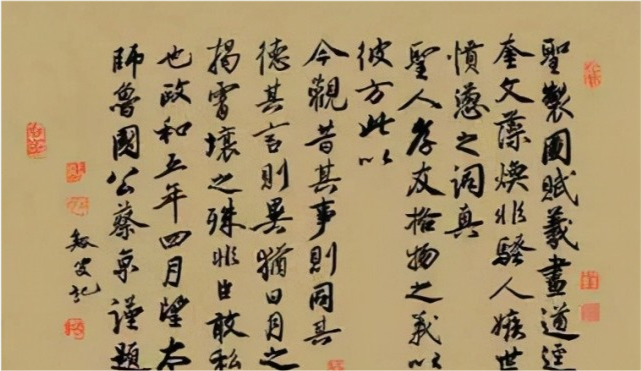 聖製圖賦羲畫道
奎文藻煥非騷人嫉世
憤懣之詞真
聖人孝友格物之義以
彼方此以
今觀昔其事則同其
德其言則異猶日月之
揭霄壤之殊非臣敢私
也政和五年四月望太
師魯國公蔡京謹題
記